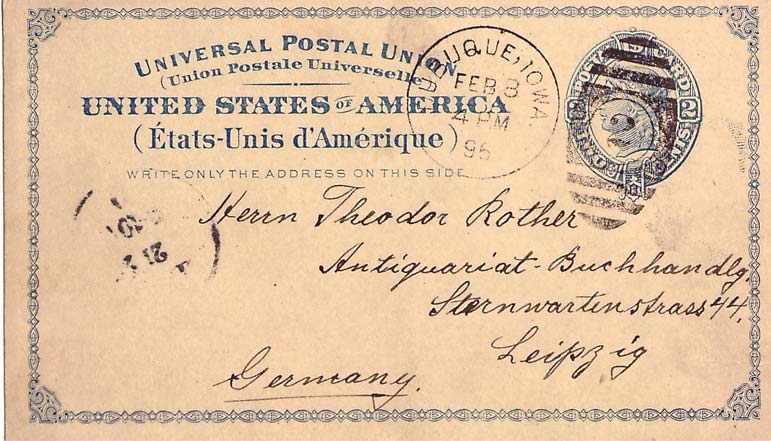 UNIVERSAL POSTAL UNION
(Union Postale Universelle)
UNITED STATES OF AMERICA
(États-Unis d'Amérique)
WRITE ONLY THE ADDRESS ON THIS SIDE
DUBUQUE, IOWA
FEB 8
4 PM
95
2
2
Herrn Theodor Rother
Antiquariat-Buchhandlg.
Sternwartenstrass 44.
Leipzig
Germany.